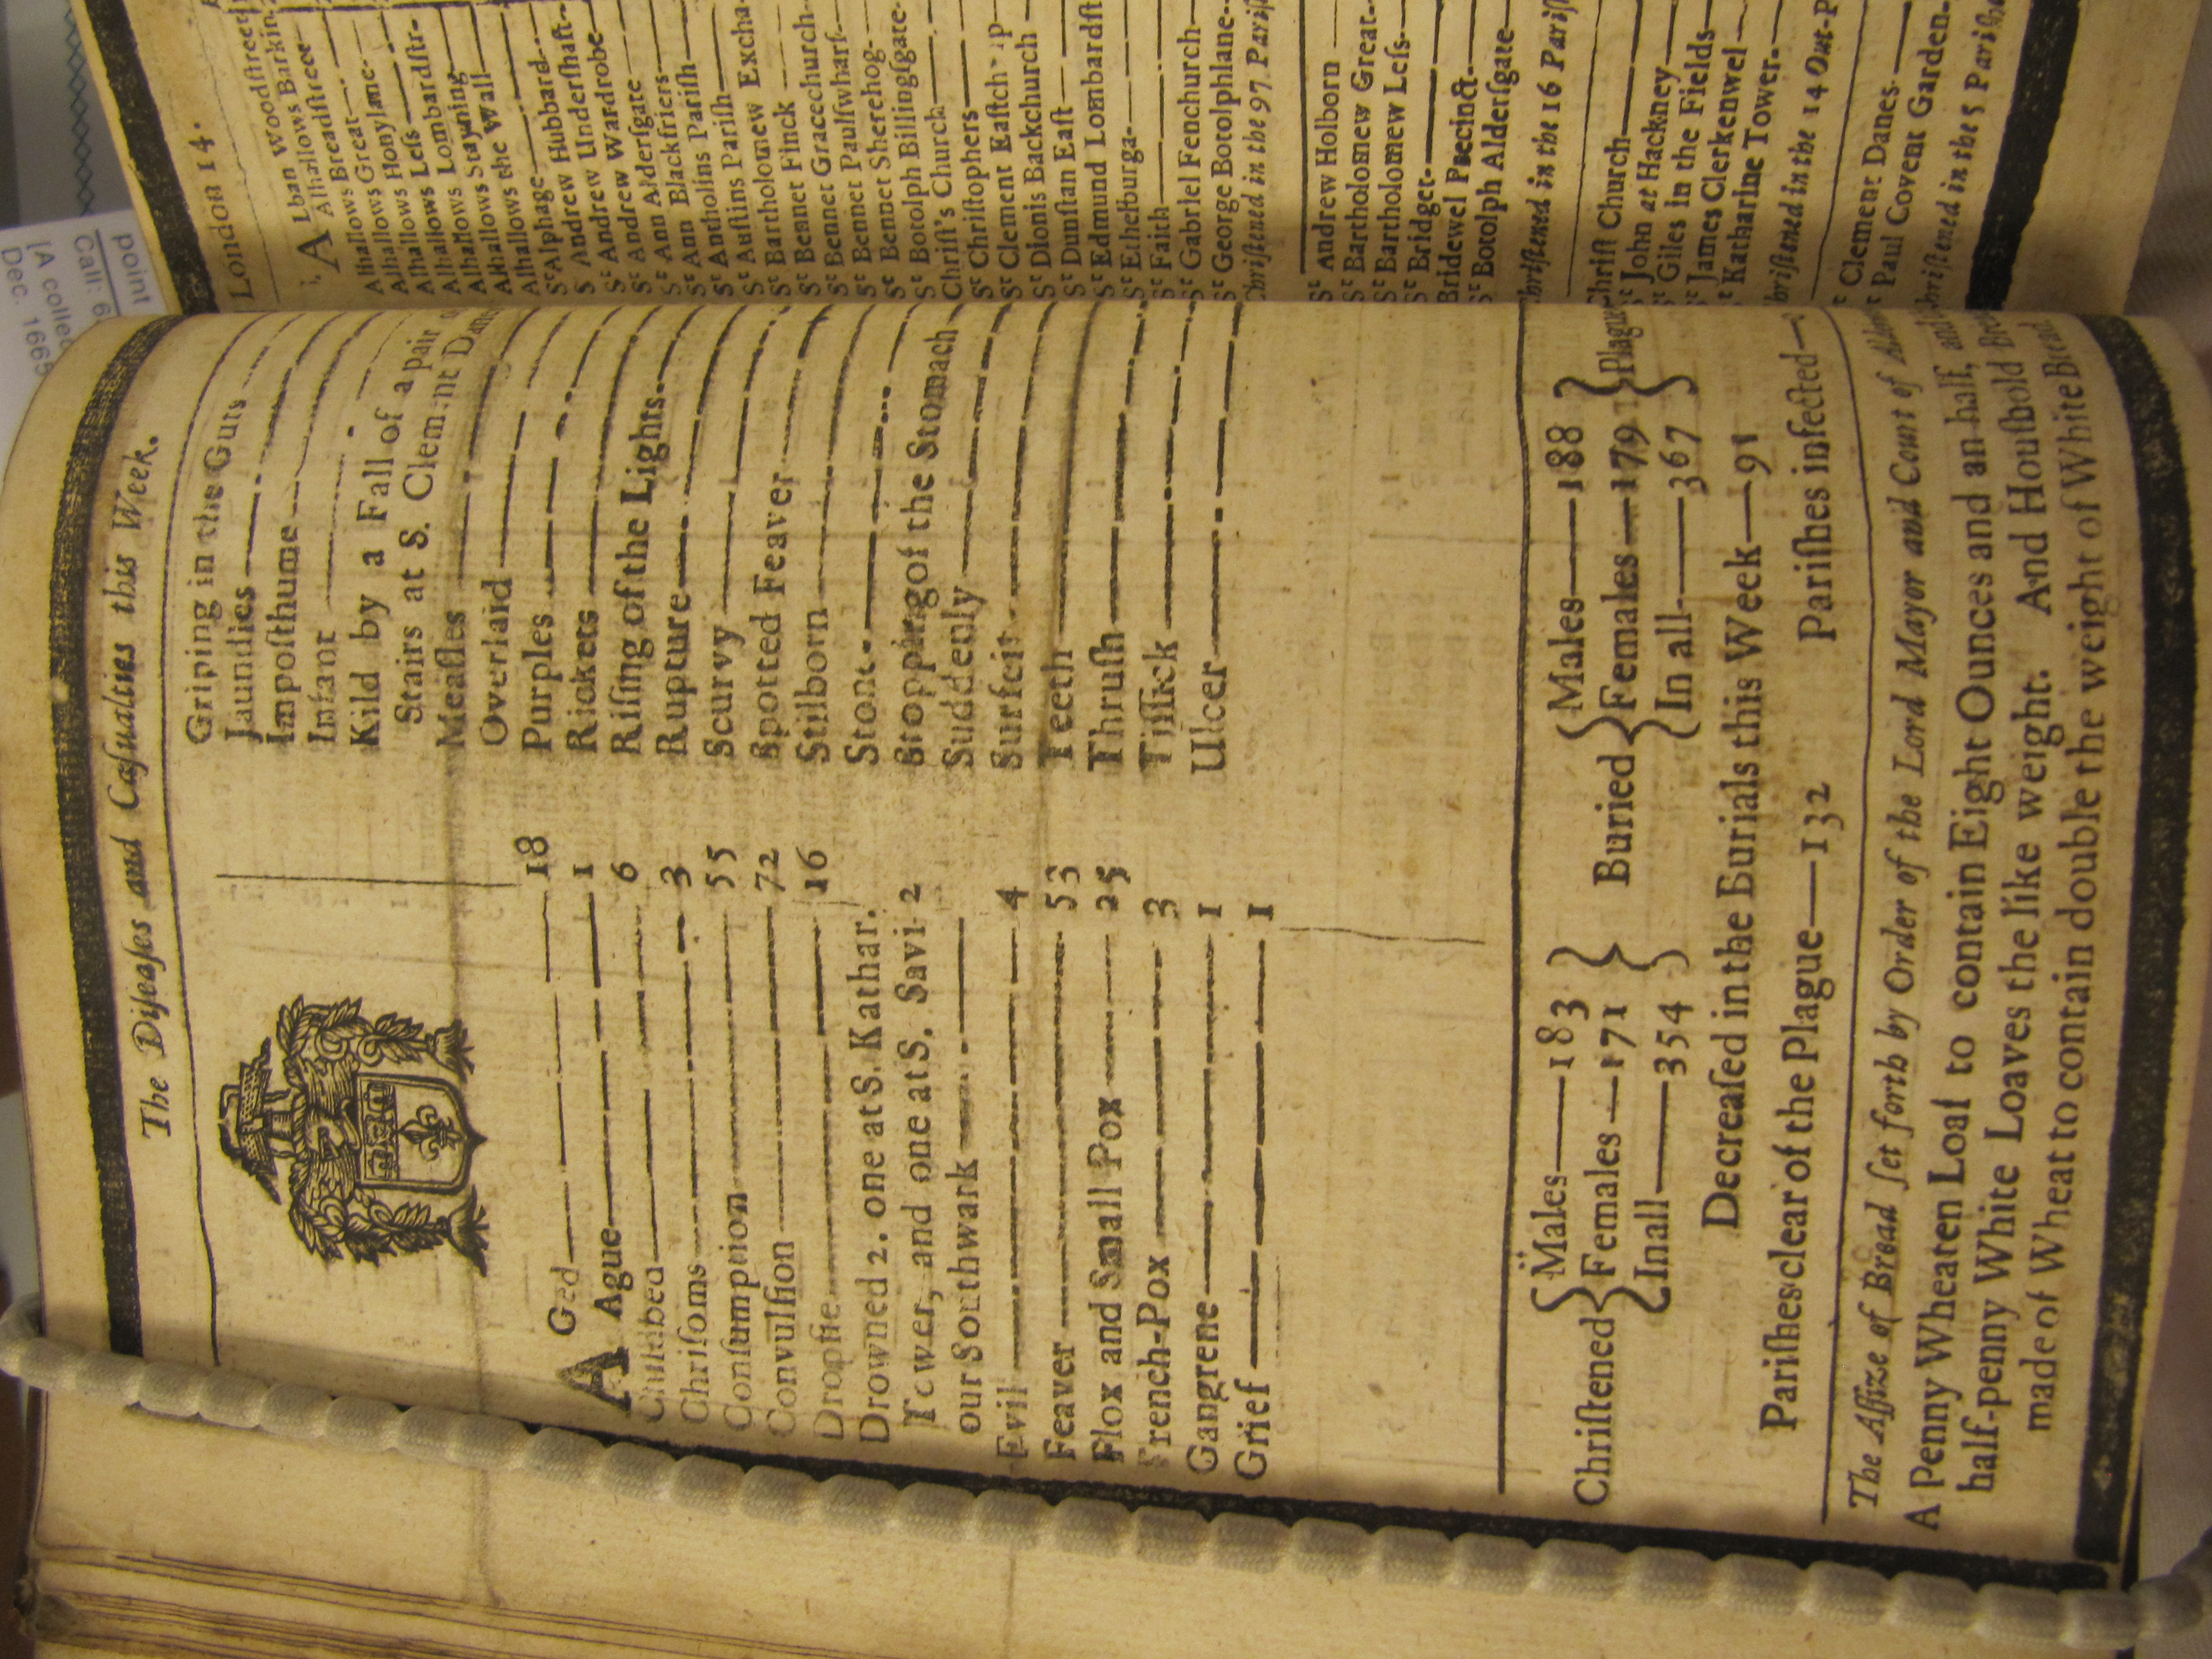 The Diſeaſes and Caſualties this Week.
AGed 18
Ague 1
Childbed 6
Chriſoms 3
Conſumption 55
Convulſion 72
Dropſie 16
Drowned 2. one at S. Kathar.
Tower, and one at S. Savi- 2
our Southwark
Evil 4
Feaver 53
Flox and Small Pox 25
French-Pox 3
Gangrene 1
Grief 1
Griping in the Guts
Jaundies
Impoſthume
Infant
Kild by a Fall of a pair
Stairs at S. Clement Danes
Meaſles
Overlaid
Purples
Rickets
Riſing of the Lights
Rupture
Scurvy
Spotted Feaver
Stilborn
Stone
Stopping of the Stomach
Suddenly
Surfeit
Teeth
Thruſh
Tiſſick
Ulcer
Chriſtened { Males 183 Females 171 In all 354 }
Buried { Males 188 Females 179 In all 367 } Plague
Decreaſed in the Burials this Week 91
Pariſhes clear of the Plague 132 Pariſhes infected
The Aſſize of Bread ſet forth by Order of the Lord Mayor and Court of
A Penny Wheaten Loaf to contain Eight Ounces and an half, and
half-penny White Loaves the like weight. And Houſhold
made of Wheat to contain double the weight of White Bread.
London 14.
ALban Woodſtreet
Alhallows Barkin
Alhallows Breadſtreet
Alhallows Great
Alhallows Honylane
Alhallows Leſs
Alhallows Lombardſtr
Alhallows Stayning
Alhallows the Wall
St Alphage
St Andrew Hubbard
St Andrew Underſhaft
St Andrew Wardrobe
St Ann Alderſgate
St Ann Blackfriers
St Antholins Pariſh
St Auſtins Pariſh
St Bartholomew Excha
St Bennet Finck
St Bennet Gracechurch
St Bennet Paulſwharf
St Bennet Sherehog
St Botolph Billingſgate
Chriſt's Church
St Chriſtophers
St Clement Eaſtch
St Dionis Backchurch
St Dunſtan Eaſt
St Edmund Lombardſt
St Ethelburga
St Faith
St Gabriel Fenchurch
St George Botolphlane
Chriſtened in the 97 Pariſ
St Andrew Holborn
St Bartholomew Great
St Bartholomew Leſs
St Bridget
Bridewel Precinct
St Botolph Alderſgate
Chriſtened in the 16 Pariſ
Chriſt Church
St John at Hackney
St Giles in the Fields
St James Clerkenwel
St Katharine Tower
Chriſtened in the 14 Out-P
St Clement Danes
St Paul Covent Garden
Chriſtened in the 5 Pariſhe
point
Call: 6
[A collec
Dec. 1665